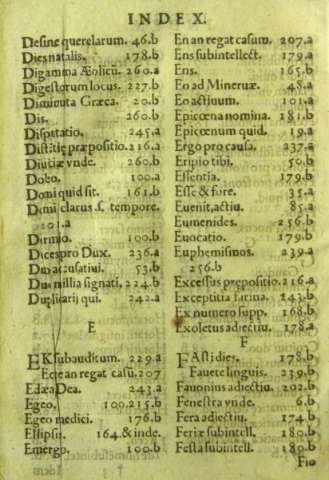 INDEX.
Desine querelarum. 46.b
Dies natalis. 178.b
Digamma Æolicū. 260.a
Digestorum locus. 227.b
Diminuta Græca. 20.b
Dis. 260.b
Disputatio. 245.a
Distitie præpositio. 216.a
Diutiæ vnde. 260.b
Dobo. 100.a
Domi quid sit. 161.b
Domi clarus s. tempore.
101.a
Dirmio. 100.b
Dices pro Dux. 236.a
Duo accusatiui. 53.b
Duo millia signati. 224.b
Duplicarij qui. 242.a
E
EK subauditum. 229.a
Ec æan regat casū. 207
Edæa Dea. 243.a
Egeo. 100.215.b
Egeo medici. 176.b
Ellipsis. 164.& inde.
Emergo. 100.b
En an regat casum. 207.a
Ens subintellect. 179.a
Ens. 165.b
Eo ad Mineruæ. 48.a
Eo actiuum. 101.a
Epicœna nomina. 181.b
Epicœnum quid. 19.a
Ergo pro causa. 237.a
Eripio tibi. 50.b
Essentia. 179.b
Esse & fore. 35.a
Euenit, actiu. 85.a
Eumenides. 256.b
Euocatio. 179.b
Euphemismos. 239.a
256.b
Excessus præpositio. 216.a
Exceptitia farina. 143.b
Ex numero supp. 168.b
Exoletus adiectiu. 178.a
F
FAsti dies. 178.b
Fauete linguis. 239.b
Fauonius adiectiu. 202.b
Fenestra vnde. 6.b
Fera adiectiu. 174.b
Feriæ subintell. 180.b
Festa subintell. 180.b
Fio